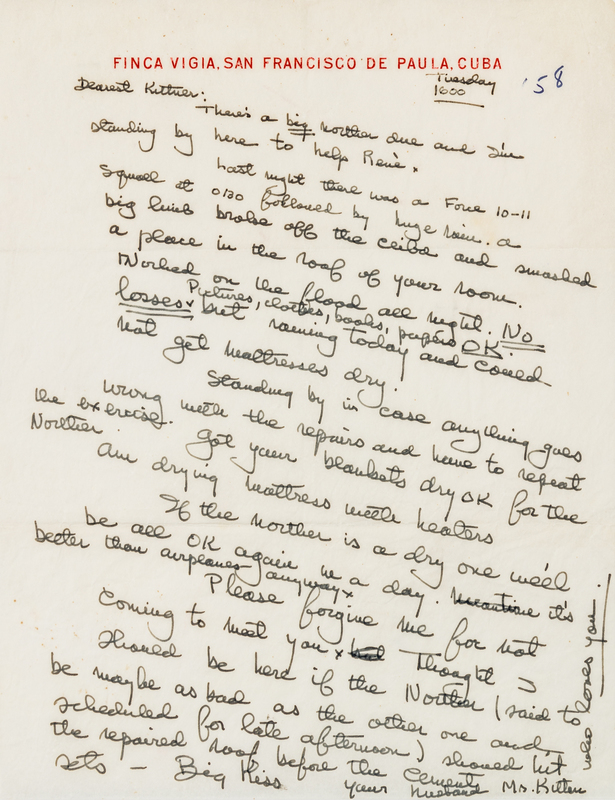 FINCA VIGIA, SAN FRANCISCO DE PAULA, CUBA
Tuesday
1600
'58
Dearest Kittner:
There's a big norther due and I'm
standing by here to help René x
Last night there was a Force 10-11
squall at 0130 followed by huge rain. a
big limb broke off the ceiba and smashed
a place in the roof of your room.
Worked on the flood all night. No
Pictures, clothes, books, papers OK.
losses x but raining today and could
not get mattresses dry.
Standing by in case anything goes
wrong with the repairs and have to repeat
the exercise. Got your blankets dry OK for the
Norther.
Am drying mattress with heaters
If the norther is a dry one we'll
be all OK again in a day. meantime it's
better than airplanes anyway x
Please forgive me for not
coming to meet you x but Thought I
should be here if the Norther (said to
be maybe as bad as the other one and
scheduled for late afternoon) should hit
the repaired roof before the cement
sets — Big Kiss
your husband Mr. Kitten
who loves you